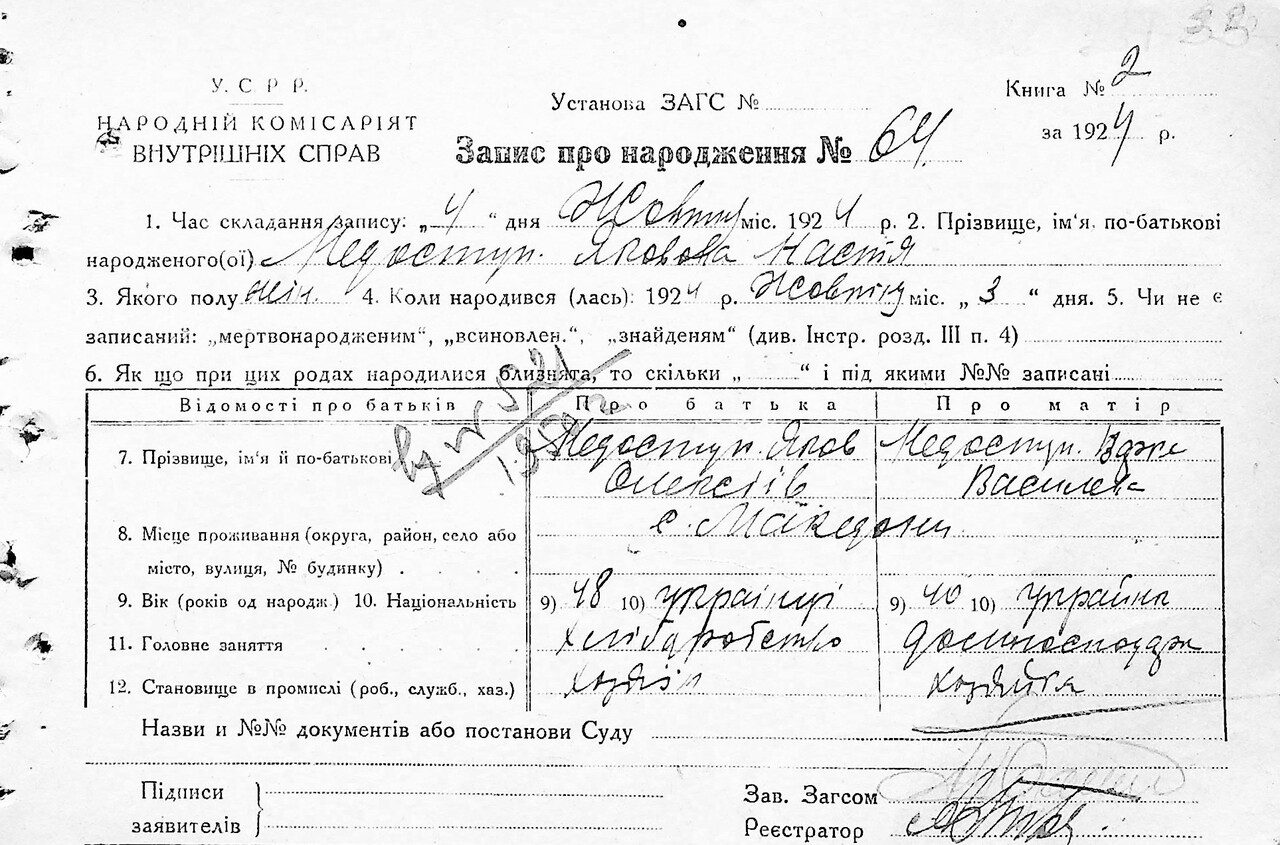 33
У. С. Р. Р.
НАРОДНІЙ КОМІСАРІЯТ
ВНУТРІШНІХ СПРАВ
Установа ЗАГС №
Книга № 2
за 1924 р.
Запис про народження № 64
1. Час складання запису: „4“ дня Жовтня міс. 1924 р. 2. Прізвище, ім'я, по-батькові
народженого(ої) Недоступ. Яковова Настя
3. Якого полу жін. 4. Коли народився (лась): 1924 р. Жовтня міс. „3“ дня. 5. Чи не є
записаний: „мертвонародженим“, „всиновлен.“, „знайденям“ (див. Інстр. розд. III п. 4)
6. Як що при цих родах народилися близнята, то скільки „ “ і під якими №№ записані
Відомості про батьків Про батька Про матір
7. Прізвище, ім'я й по-батькові Недоступ. Яков Недоступ.
Олексіїв Василев
с. Македони
8. Місце проживання (округа, район, село або
місто, вулиця, № будинку)
9. Вік (років од народж.) 10. Національність 9) 48 10) українці 9) 40 10) україна
11. Головне заняття хліборобство
12. Становище в промислі (роб., служб., хаз.) хозяїн хозяйка
Назви и №№ документів або постанови Суду
Підписи
заявителів
Зав. Загсом
Реєстратор